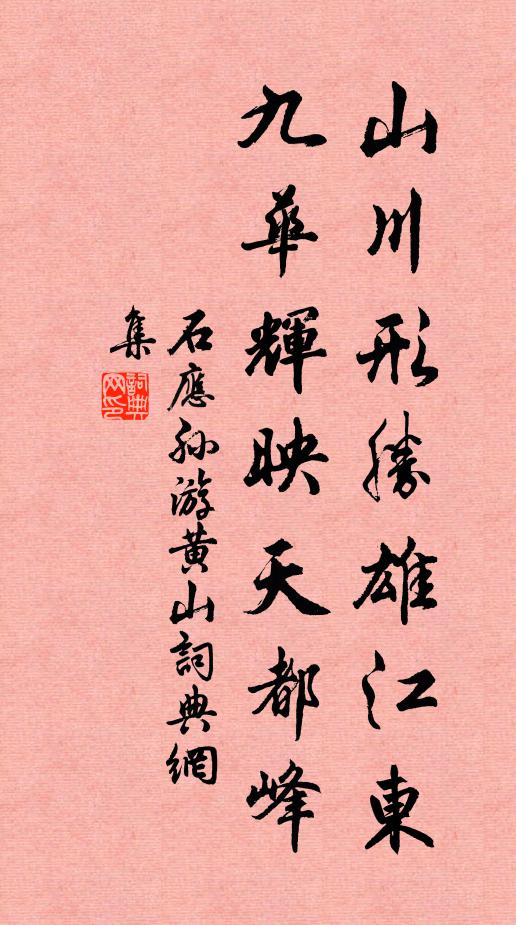 山川形勝雄江東
九華輝映天都峰
石應孙游黄山詞典網
集
詞典网印